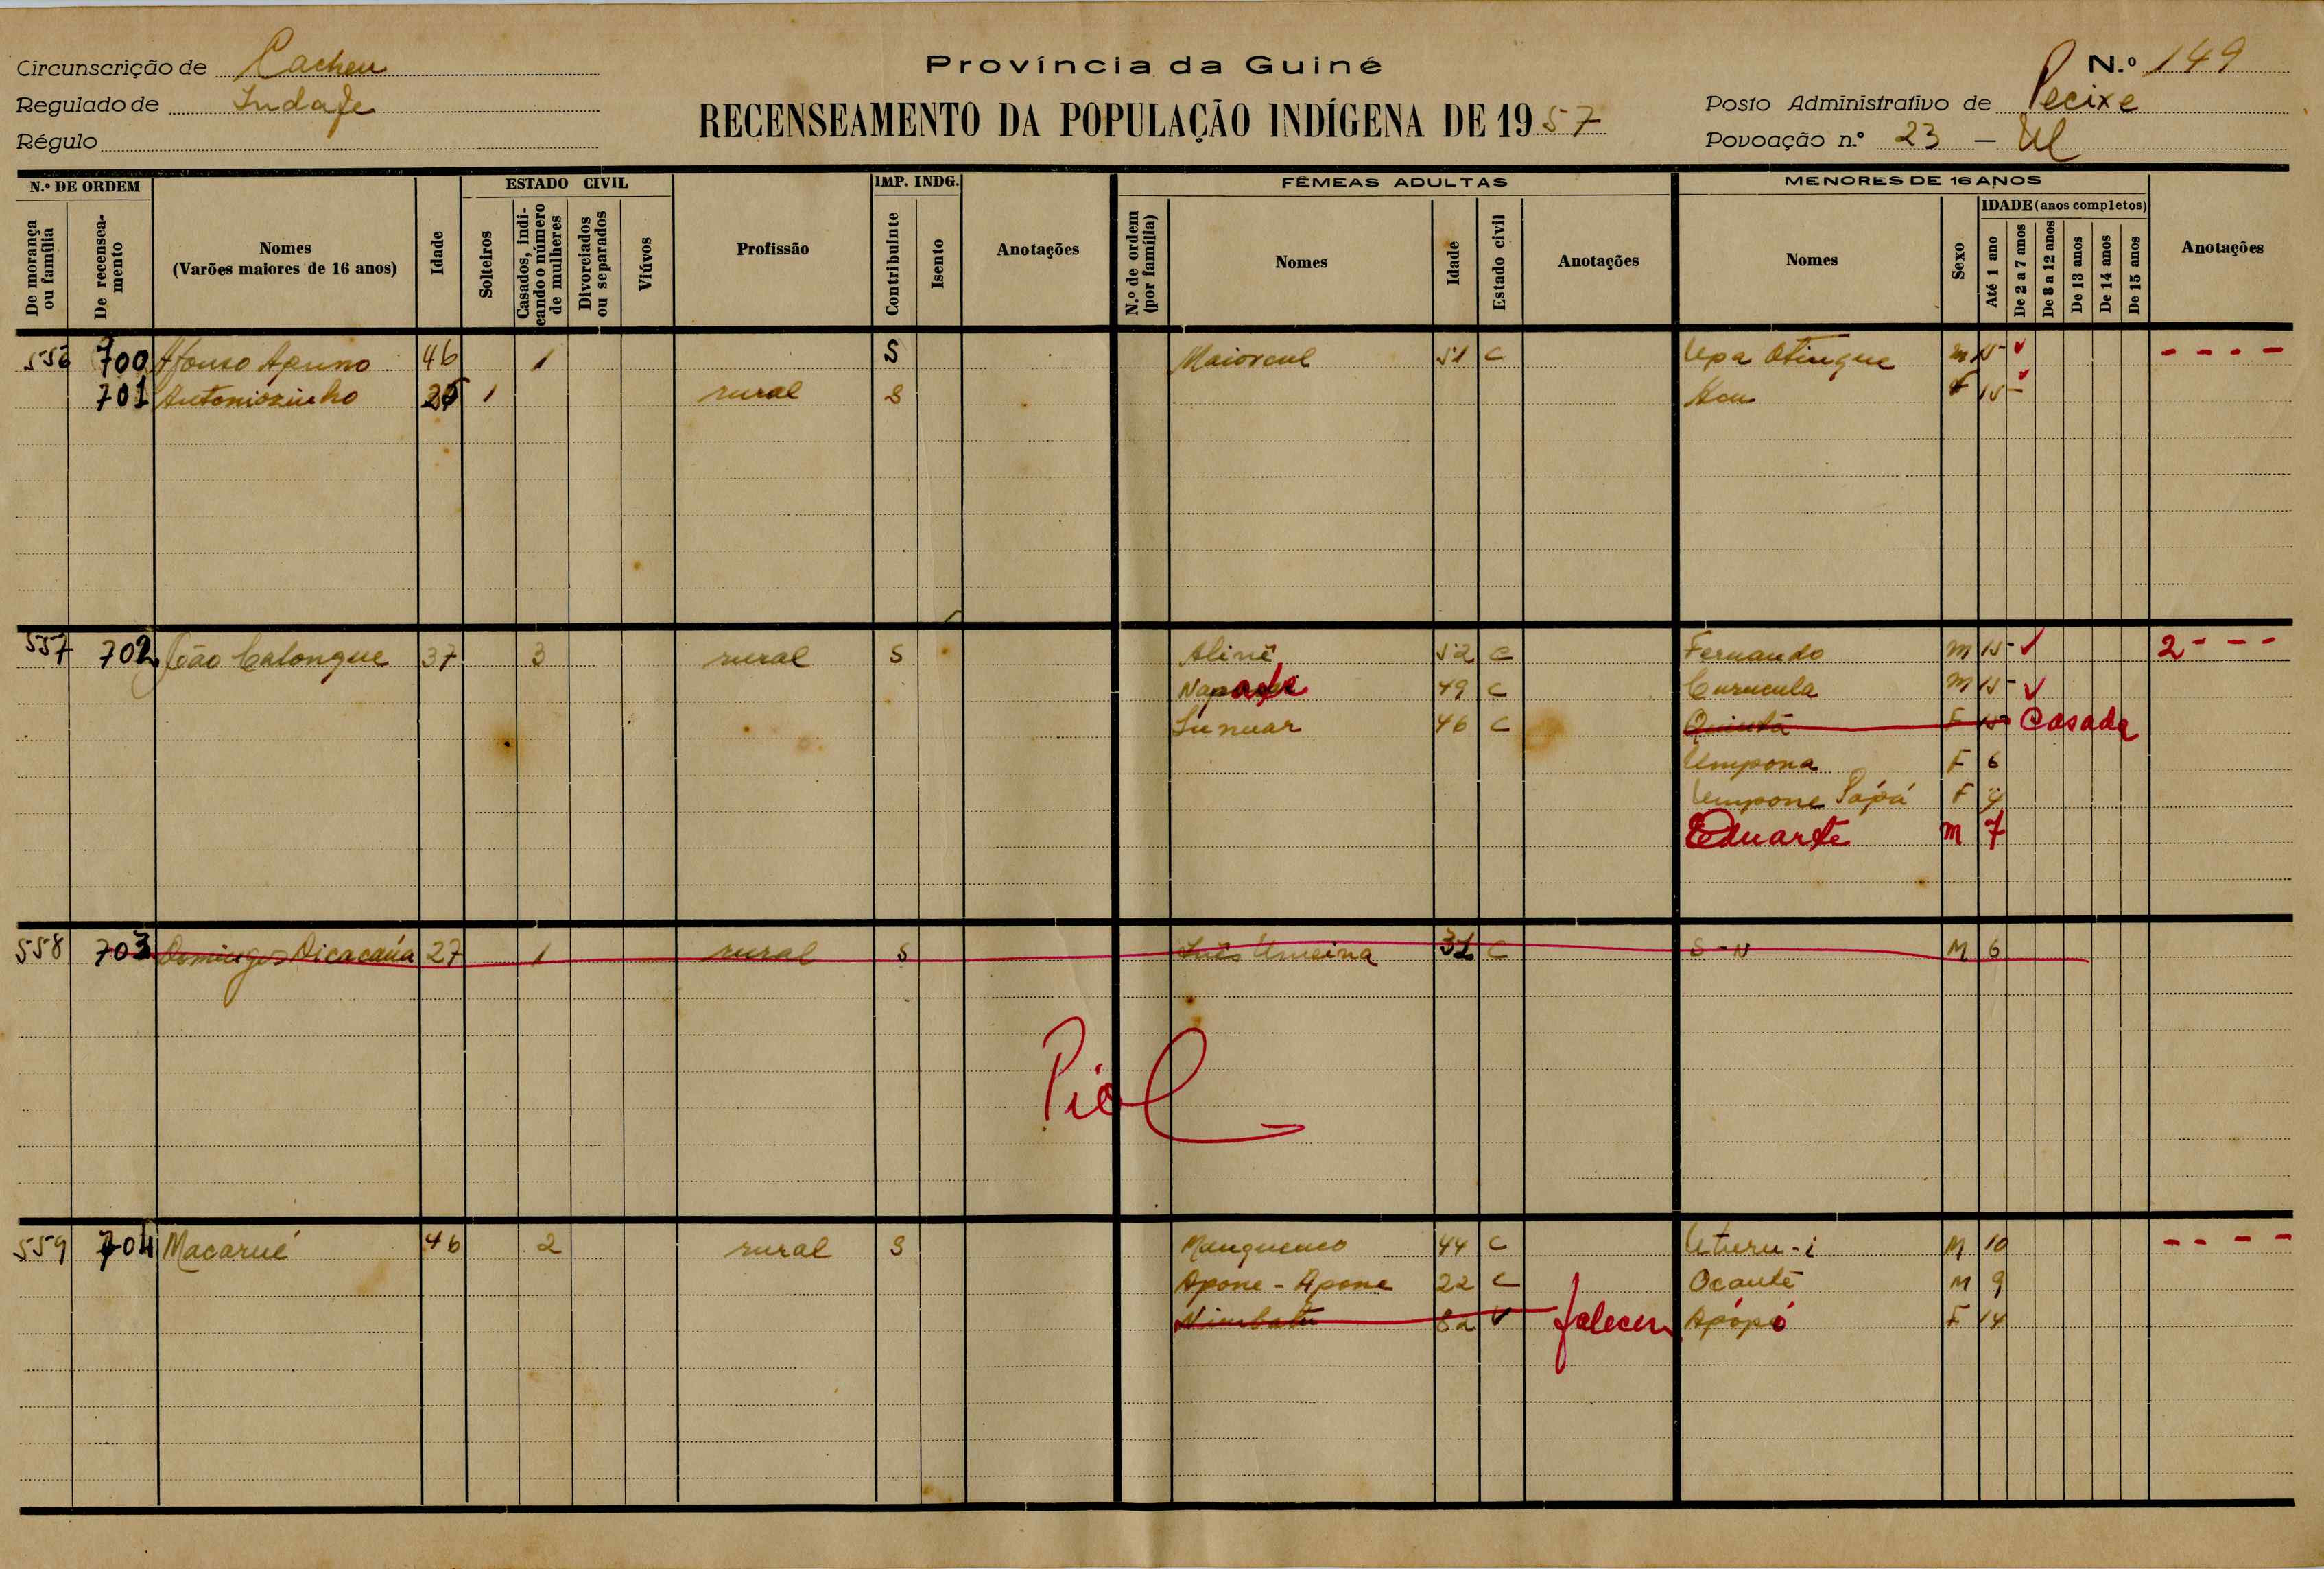 Circunscrição de Cacheu
Província da Guiné
N.º 149
Regulado de Indafe
RECENSEAMENTO DA POPULAÇÃO INDÍGENA DE 1957
Posto Administrativo de Pecixe
Régulo
Povoação n.º 23 — Ul
N.º DE ORDEM
ESTADO CIVIL
IMP. INDG.
FÊMEAS ADULTAS
MENORES DE 16 ANOS
De morança ou família
De recenseamento
Nomes
(Varões maiores de 16 anos)
Idade
Solteiros
Casados, indicando o número de mulheres
Divorciados ou separados
Viúvos
Profissão
Contribuinte
Isento
Anotações
N.º de ordem (por família)
Nomes
Idade
Estado civil
Anotações
Nomes
Sexo
IDADE (anos completos)
Até 1 ano
De 2 a 7 anos
De 8 a 12 anos
De 13 anos
De 14 anos
De 15 anos
Anotações
556 700 Afonso Apuno 46 1 S Maiorcul 51 C Upa Otinque M 15 - ✓ - - - -
701 Antoniozinho 1 rural S Acu F 15 - ✓
557 702 João Calonque 37 3 rural S Alinê 52 C Fernando M 15 - ✓ 2 - - -
49 C Curucula M 15 - ✓
Sunuar 46 C Quintà F 15 Casada
Umpona F 6
Umpone Pápá F
Eduarte M 7
558 703 Domingos Dicacaúa 27 1 rural S Inês Umeina C S - N M 6
Piol
559 704 Macarué 46 2 rural S 44 C Uturu-i M 10 - - - -
Apone - Apone 22 C Ocautê M 9
Nimbatu 82 V faleceu Apópó F 14